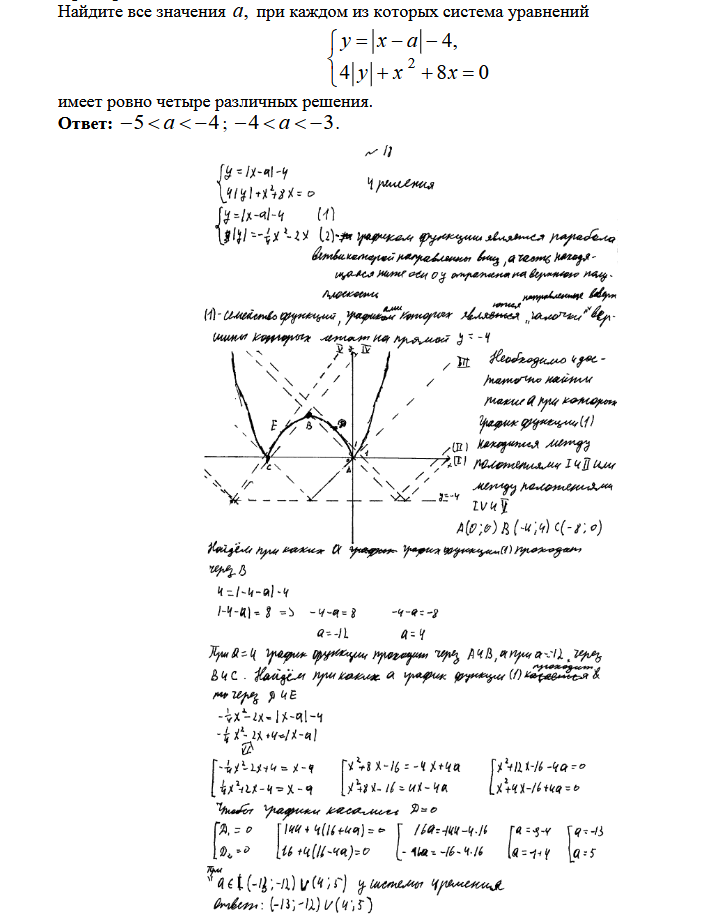 Найдите все значения a, при каждом из которых система уравнений
{ y = |x − a| − 4,
4|y| + x² + 8x = 0
имеет ровно четыре различных решения.
Ответ: −5 < a < −4 ; −4 < a < −3.
~ 18
{ y = |x-a|-4
4|y|+x²+8x=0 4 решения
{ y = |x-a|-4 (1)
|y| = -¼x²-2x (2) - графиком функции является парабола
ветви которой направленны вниз, а часть находя-
щаяся ниже оси Oy отражена на верхнюю полу-
плоскости
(1) - семейство функций, графиками которых являются "галочки" направленные вверх вер-
шины которых лежат на прямой y = -4
V IV
III
E B D
C A 1
(II)
(I)
y=-4
Необходимо и дос-
таточно найти
такие a при которых
график функции (1)
находится между
положениями I и II или
между положениями
IV и V
A(0;0) B(-4;4) C(-8;0)
Найдём при каких a график функции (1) проходит
через B
4 = |-4-a|-4
|-4-a| = 8 => -4-a=8 -4-a=-8
a=-12 a=4
При a=4 график функции проходит через A и B, а при a=-12 через
B и C. Найдём при каких a график функции (1) проходит
через D и E
-¼x²-2x=|x-a|-4
-¼x²-2x+4=|x-a|
[ -¼x²-2x+4 = x-a [ x²+8x-16 = -4x+4a [ x²+12x-16-4a=0
¼x²+2x-4 = x-a x²+8x-16 = 4x-4a x²+4x-16+4a=0
Чтобы графики касались D=0
[ D₁ = 0 [ 144+4(16+4a)=0 [ 16a=-144-4·16 [ a=-9-4 [ a=-13
D₂ = 0 16+4(16-4a)=0 -16a=-16-4·16 a=1+4 a=5
При a ∈ (-13;-12) ∪ (4;5) у системы 4 решения
Ответ: (-13;-12) ∪ (4;5)